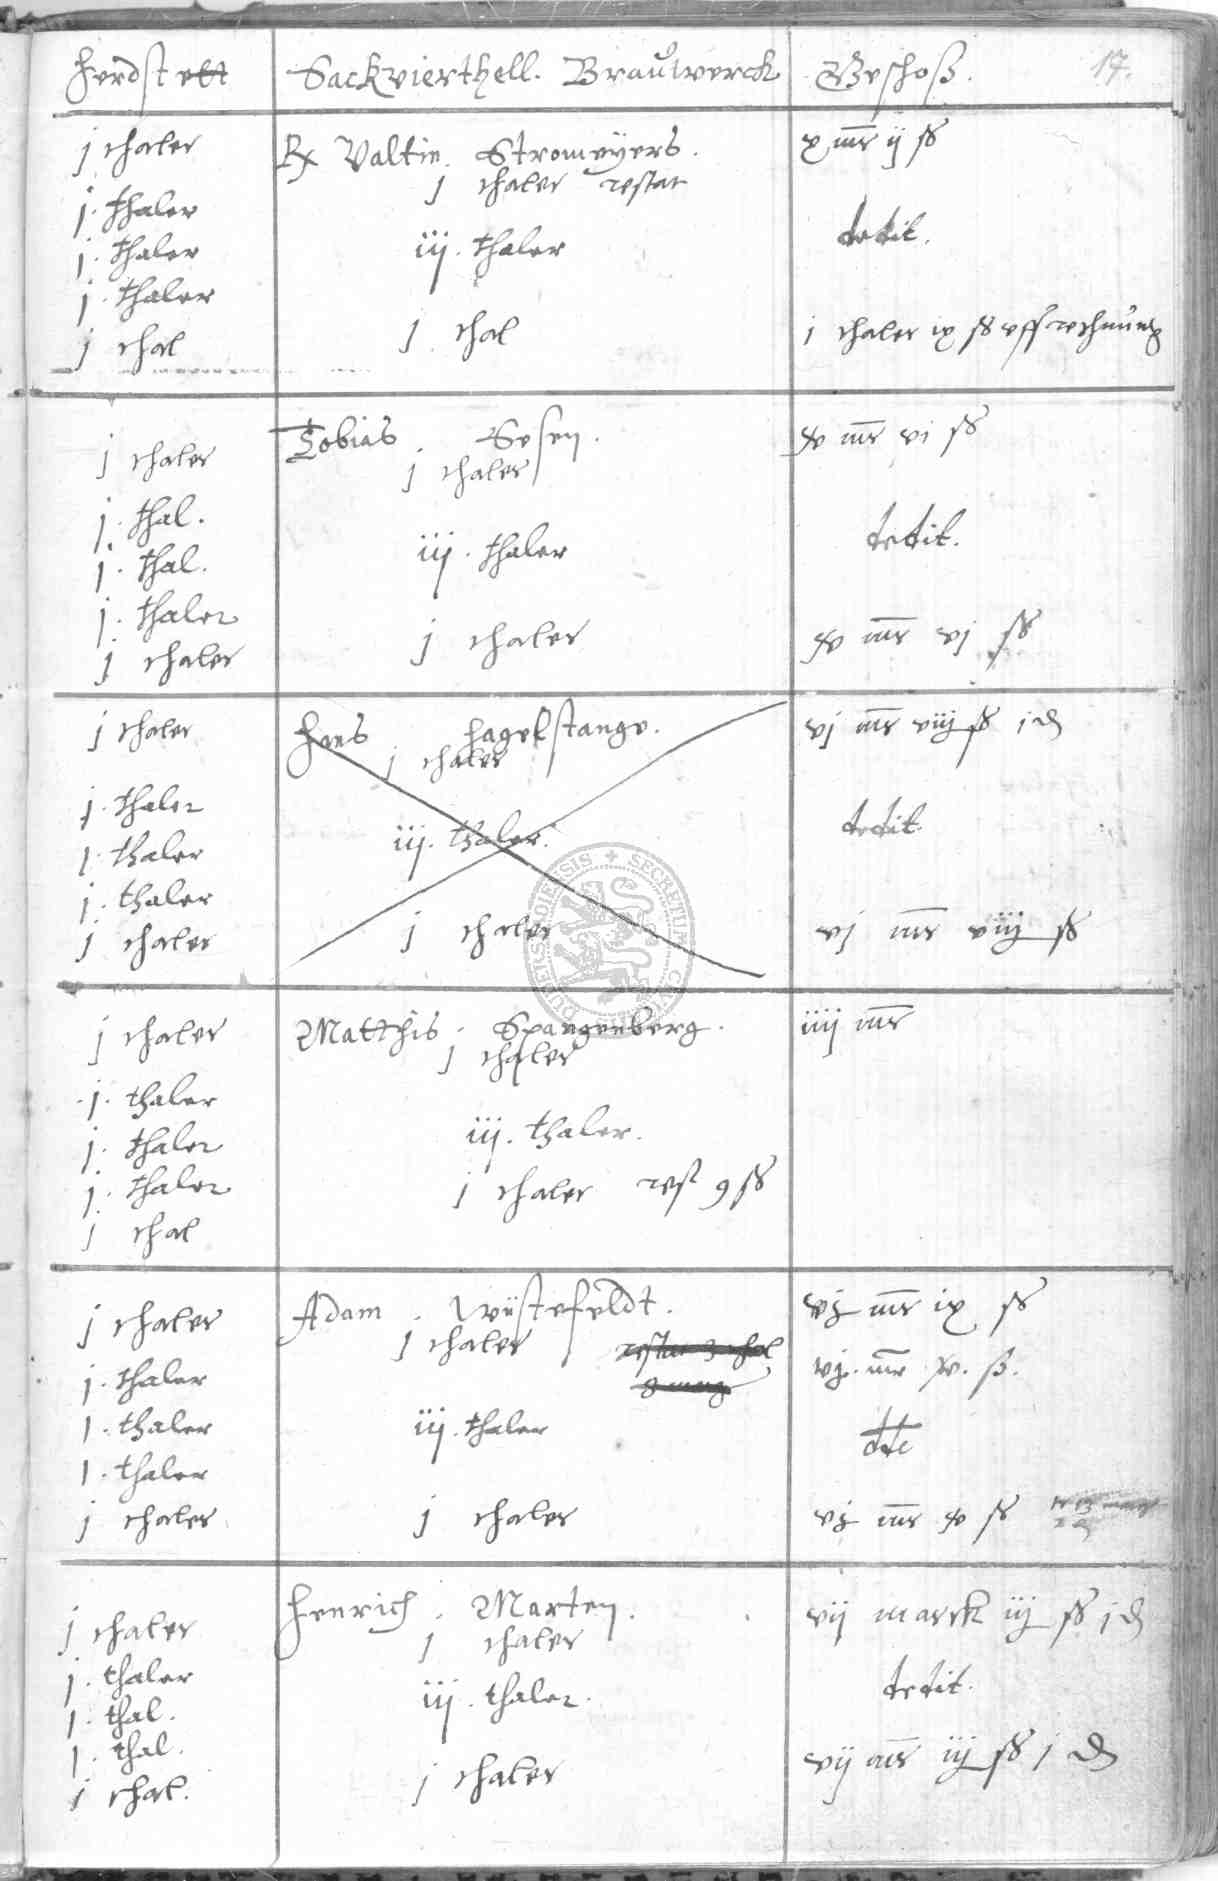 Herdstett Sackvierthell. Brauwerck Geschoß. 17.
j thaler Rx Valtin Stromeyers. x mr ij ß
j thaler restat
j. thaler
j. thaler iij. thaler dedit.
j. thaler
j thal j thal j thaler ix ß vff rechnung
j thaler Tobias Sesen. xv mr vi ß
j thaler
j. thal.
j. thal. iij. thaler dedit.
j. thaler
j thaler j thaler xv mr vj ß
j thaler Hans Hagelstange. vj mr viij ß j d
j thaler
j. thaler
j. thaler iij. thaler. dedit.
j. thaler
j thaler j thaler vj mr viij ß
j thaler Matthis. Spangenberg. iiij mr
j thaler
j. thaler
j. thaler iij. thaler.
j. thaler j thaler rest 9 ß
j thal
j thaler Adam. Wüstefeldt. vj mr ix ß
j thaler restat 3 thal
j. thaler vj. mr xv. ß.
j. thaler iij. thaler dt
j. thaler
j thaler j thaler vj mr xv ß
j thaler Henrich. Marten. vij marck iij ß j d
j thaler
j. thaler iij. thaler. dedit.
j. thal.
j. thal. j thaler vij mr iij ß j d
j thal.
SECRETUM